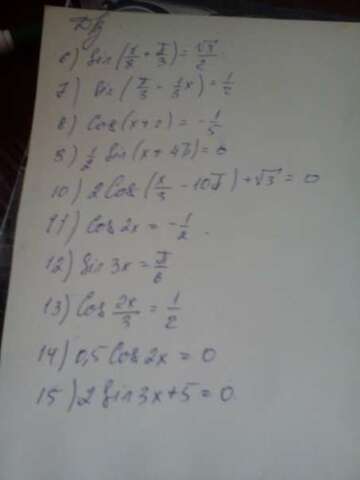 Дз
6) sin(x/8 + π/3) = √3/2
7) sin(π/3 - 1/3x) = 1/2
8) cos(x+2) = -1/5
9) 1/2 sin(x+4π) = 0
10) 2cos(x/3 - 10π) + √3 = 0
11) cos2x = -1/2.
12) sin3x = π/6
13) cos 2x/3 = 1/2
14) 0,5cos2x = 0
15) 2sin3x+5=0